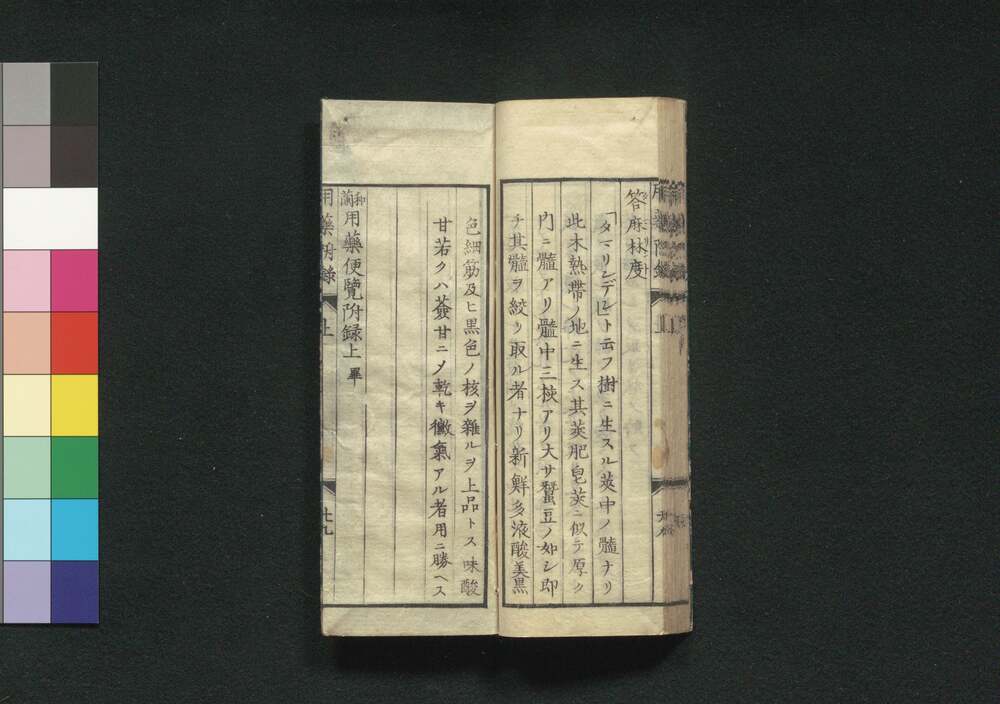 答麻林度
「タマリンデレ」ト云フ樹ニ生スル莢中ノ髓ナリ
此木熱帶ノ地ニ生ス其莢肥皂莢ニ似テ厚ク
内ニ髓アリ髓中三核アリ大サ蠶豆ノ如シ即
チ其髓ヲ絞リ取ル者ナリ新鮮多液酸美黒
色細筋及ヒ黒色ノ核ヲ雜ルヲ上品トス味酸
甘若クハ甘ニメ乾キ黴氣アル者用ニ勝ヘス
和蘭用藥便覽附録上 畢
用藥附録 上 十九